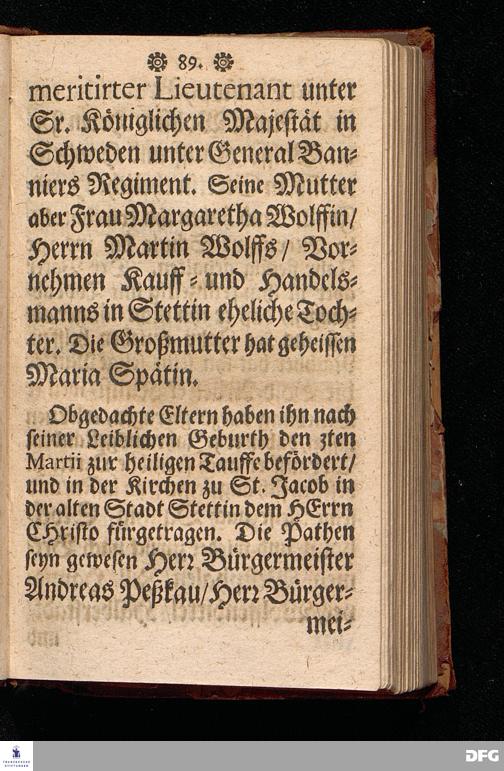 ❁ 89. ❁
meritirter Lieutenant unter
Sr. Königlichen Majestät in
Schweden unter General Ban-
niers Regiment. Seine Mutter
aber Frau Margaretha Wolffin/
Herrn Martin Wolffs/ Vor-
nehmen Kauff- und Handels-
manns in Stettin eheliche Toch-
ter. Die Großmutter hat geheissen
Maria Spätin.
Obgedachte Eltern haben ihn nach
seiner Leiblichen Geburth den 3ten
Martii zur heiligen Tauffe befördert/
und in der Kirchen zu St. Jacob in
der alten Stadt Stettin dem HErrn
CHristo fürgetragen. Die Pathen
seyn gewesen Herr Bürgermeister
Andreas Peßkau/ Herr Bürger-
mei-
FRANCKESCHE STIFTUNGEN
DFG